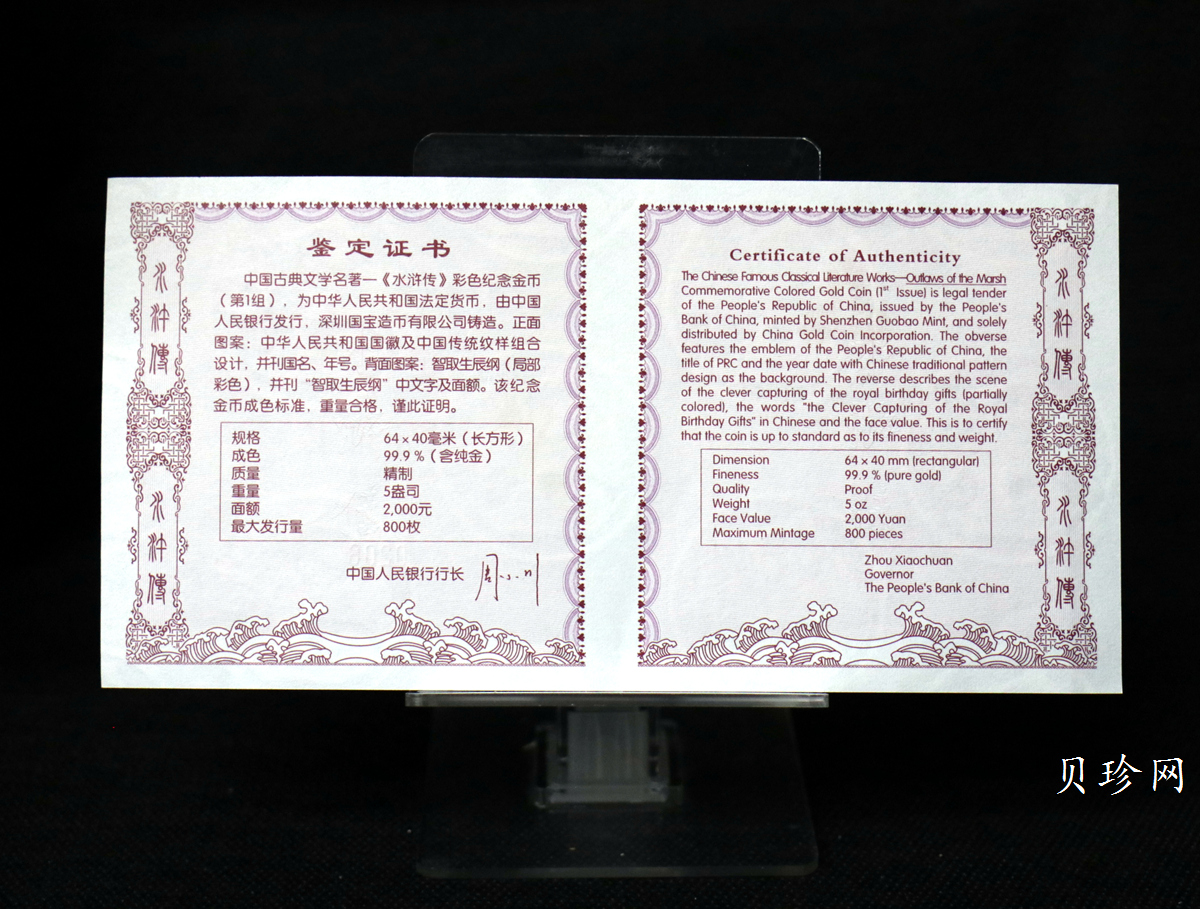 水滸傳
水滸傳
鉴定证书
中国古典文学名著—《水浒传》彩色纪念金币
（第1组），为中华人民共和国法定货币，由中国
人民银行发行，深圳国宝造币有限公司铸造。正面
图案：中华人民共和国国徽及中国传统纹样组合
设计，并刊国名、年号。背面图案：智取生辰纲（局部
彩色），并刊“智取生辰纲”中文字及面额。该纪念
金币成色标准，重量合格，谨此证明。
规格 64×40毫米（长方形）
成色 99.9％（含纯金）
质量 精制
重量 5盎司
面额 2,000元
最大发行量 800枚
中国人民银行行长 周小川
Certificate of Authenticity
The Chinese Famous Classical Literature Works—Outlaws of the Marsh
Commemorative Colored Gold Coin (1st Issue) is legal tender
of the People's Republic of China, issued by the People's
Bank of China, minted by Shenzhen Guobao Mint, and solely
distributed by China Gold Coin Incorporation. The obverse
features the emblem of the People's Republic of China, the
title of PRC and the year date with Chinese traditional pattern
design as the background. The reverse describes the scene
of the clever capturing of the royal birthday gifts (partially
colored), the words "the Clever Capturing of the Royal
Birthday Gifts" in Chinese and the face value. This is to certify
that the coin is up to standard as to its fineness and weight.
Dimension 64 × 40 mm (rectangular)
Fineness 99.9 % (pure gold)
Quality Proof
Weight 5 oz
Face Value 2,000 Yuan
Maximum Mintage 800 pieces
Zhou Xiaochuan
Governor
The People's Bank of China
水滸傳
水滸傳
贝珍网